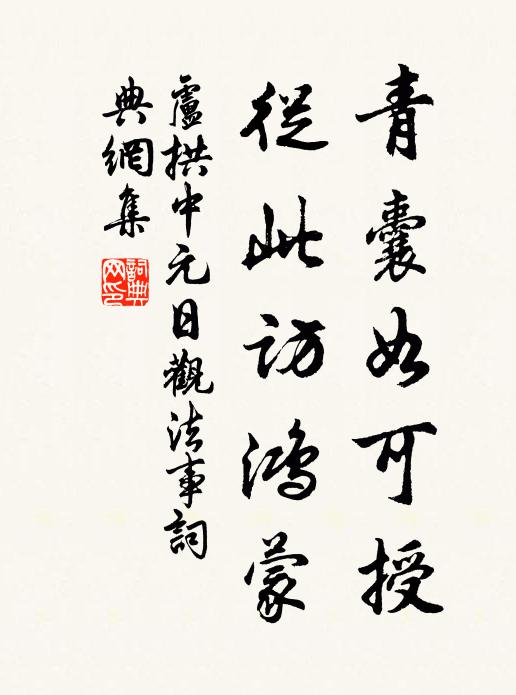 青囊如可授
從此訪鴻蒙
盧拱中元日觀法事詞
典網集
詞典
网印